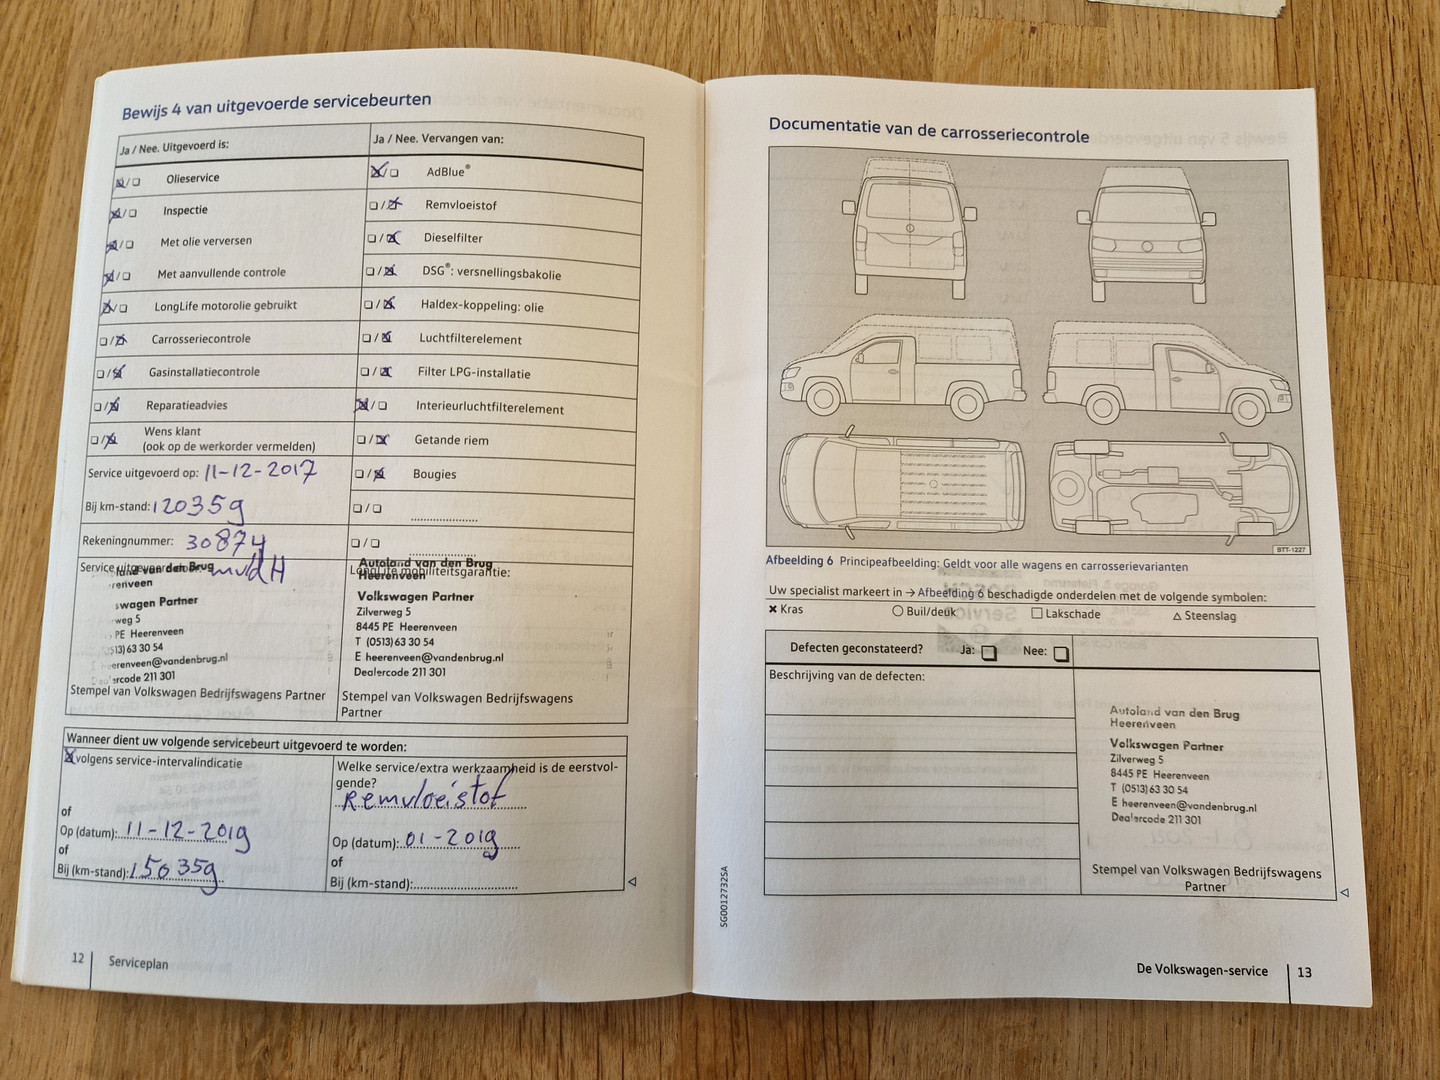 Bewijs 4 van uitgevoerde servicebeurten
Ja / Nee. Uitgevoerd is:
Olieservice
Inspectie
Met olie verversen
Met aanvullende controle
LongLife motorolie gebruikt
Carrosseriecontrole
Gasinstallatiecontrole
Reparatieadvies
Wens klant
(ook op de werkorder vermelden)
Service uitgevoerd op: 11-12-2017
Bij km-stand: 120359
Rekeningnummer: 30874
Service uitgevoerd door: mvdH
land van den Brug
renveen
swagen Partner
weg 5
PE Heerenveen
513) 63 30 54
heerenveen@vandenbrug.nl
ercode 211 301
Stempel van Volkswagen Bedrijfswagens Partner
Ja / Nee. Vervangen van:
AdBlue®
Remvloeistof
Dieselfilter
DSG®: versnellingsbakolie
Haldex-koppeling: olie
Luchtfilterelement
Filter LPG-installatie
Interieurluchtfilterelement
Getande riem
Bougies
LongLife mobiliteitsgarantie:
Autoland van den Brug
Heerenveen
Volkswagen Partner
Zilverweg 5
8445 PE Heerenveen
T (0513) 63 30 54
E heerenveen@vandenbrug.nl
Dealercode 211 301
Stempel van Volkswagen Bedrijfswagens
Partner
Wanneer dient uw volgende servicebeurt uitgevoerd te worden:
volgens service-intervalindicatie
of
Op (datum): 11-12-2019
of
Bij (km-stand): 150359
Welke service/extra werkzaamheid is de eerstvol-
gende?
Remvloeistof
Op (datum): 01-2019
of
Bij (km-stand):
12
Serviceplan
Documentatie van de carrosseriecontrole
BTT-1227
Afbeelding 6 Principeafbeelding: Geldt voor alle wagens en carrosserievarianten
Uw specialist markeert in → Afbeelding 6 beschadigde onderdelen met de volgende symbolen:
Kras
Buil/deuk
Lakschade
Steenslag
Defecten geconstateerd? Ja: Nee:
Beschrijving van de defecten:
Autoland van den Brug
Heerenveen
Volkswagen Partner
Zilverweg 5
8445 PE Heerenveen
T (0513) 63 30 54
E heerenveen@vandenbrug.nl
Dealercode 211 301
Stempel van Volkswagen Bedrijfswagens
Partner
SG0012732SA
De Volkswagen-service
13